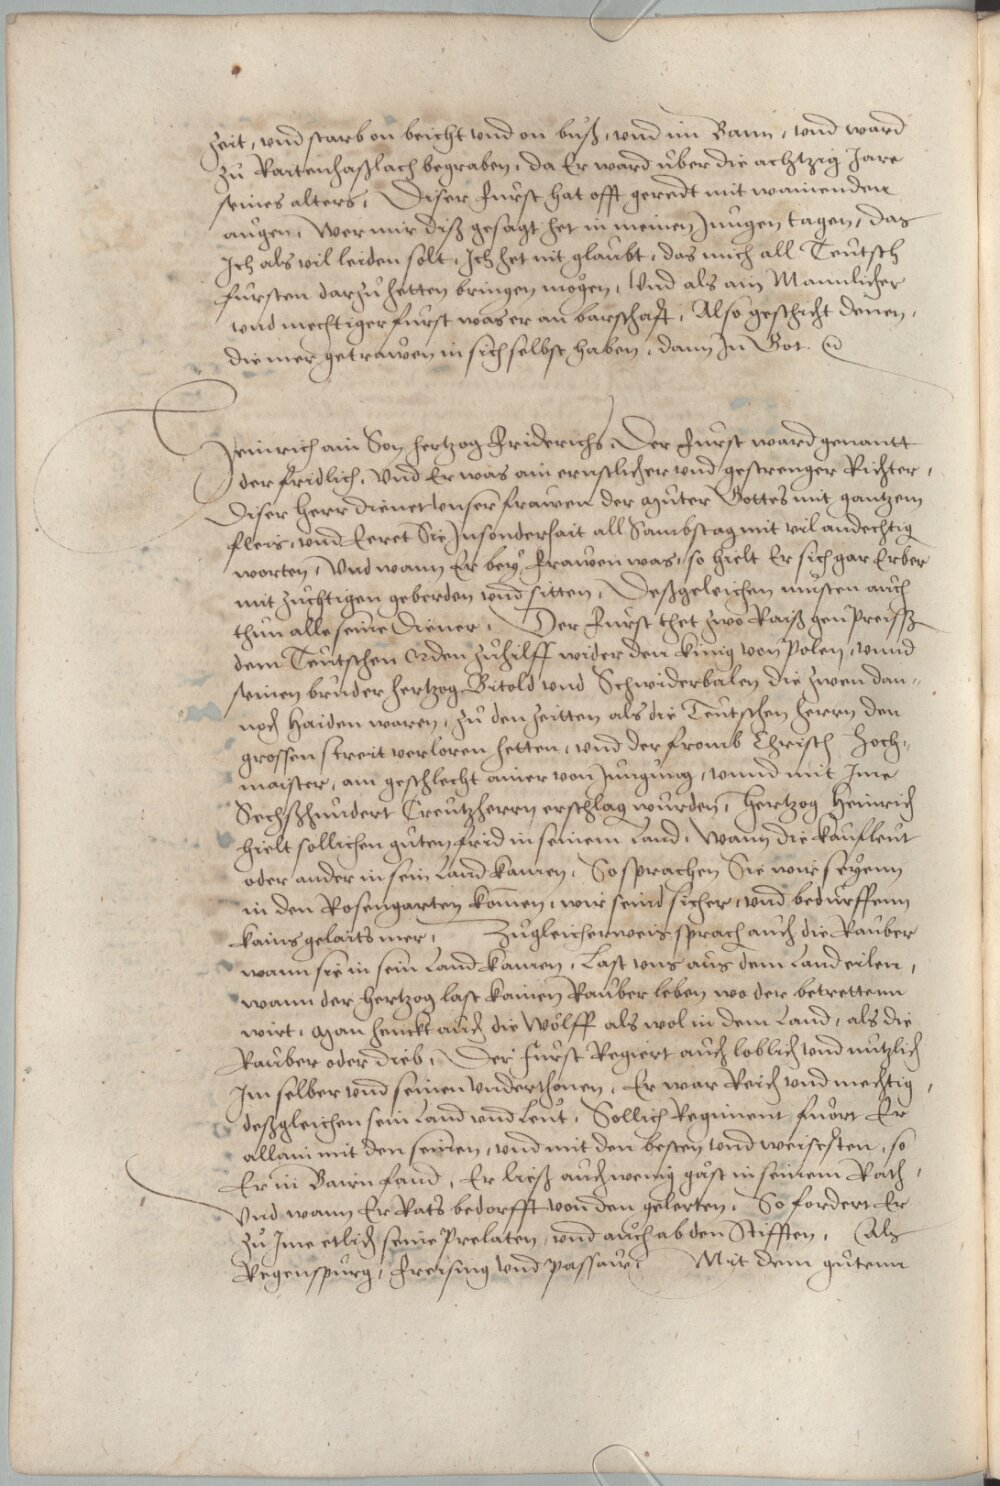 Zeit, vnd starb on beicht vnd on buß, vnd im Bann, vnd ward
zu Raitenhaßlach begraben, da Er ward über die achtzig Jare
seines alters, Diser Fürst hat offt geredt mit wainenden
augen, Wer mir diß gesagt het in meinen Jungen tagen, das
Ich als vil leiden solt, Ich het nit glaubt, das mich all Teutsch
fürsten darzu hetten bringen mögen, Vnd als ain Mannlicher
vnd mechtiger fürst was er an barschafft, Also geschicht denen,
die mer getrawen in sich selbst haben, dann In Got.
Heinrich ain Son hertzog Friderichs, Der Fürst ward genantt
der fridlich, Vnd Er was ain ernstlicher vnd gestrenger Richter,
Diser Herr dienet vnser frawen der muter Gottes mit gantzem
fleis, vnd Eeret Sie Insonderhait all Sambstag mit vil andechtig
worten, Vnd wann Er bey Frawen was, so hielt Er sich gar Erber
mit züchtigen geberden vnd sitten, Deßgeleichen musten auch
thun alle seine Diener, Der Fürst thet zwo Raiß gen Preissß
dem Teutschen Orden zuhilff wider den künig von Polen, vnnd
seinen bruder hertzog Bitold vnd Schwiderbalen die zwen dan-
noch Haiden waren, zu den Zeitten als die Teutschen herrn den
grossen streit verloren hetten, vnd der fromb Christlich Hoch-
maister, am geschlecht ainer von Jungung, vnnd mit Ime
Sechßhundert Creutzherrn erschlag wurden, Hertzog Heinrich
hielt sollichen guten frid in seinem Land, Wann die kaufleut
oder ander in sein Land kamen, So sprachen Sie wir seyenn
in den Rosengarten komen, wir seind sicher, vnd bedürffenn
kains gelaits mer, Zugleicherweis sprach auch die Rauber
wann sie in sein Land kamen, Last vns aus dem Land eilen,
wann der Hertzog last kainen Rauber leben wo der betrettenn
wirt, Man henckt auch die Wölff als wol in dem Land, als die
Rauber oder dieb, Der Fürst Regiert auch loblich vnd nutzlich
Im selber vnd seinen vnderthonen, Er war Reich vnd mechtig,
deßgleichen sein Land vnd Leut, Sollich Regiment fuort Er
allain mit den seinen, vnd mit den besten vnd weisesten, so
Er in Bairn fand, Er ließ auch wenig gäst in seinem Rath,
Vnd wann Er Rats bedorfft von den gelerten, So fordert Er
zu Ime etlich seine Prelaten, vnd auch ab den Stifften, Als
Regenspurg, Freising vnd Passaw, Mit dem gutenn